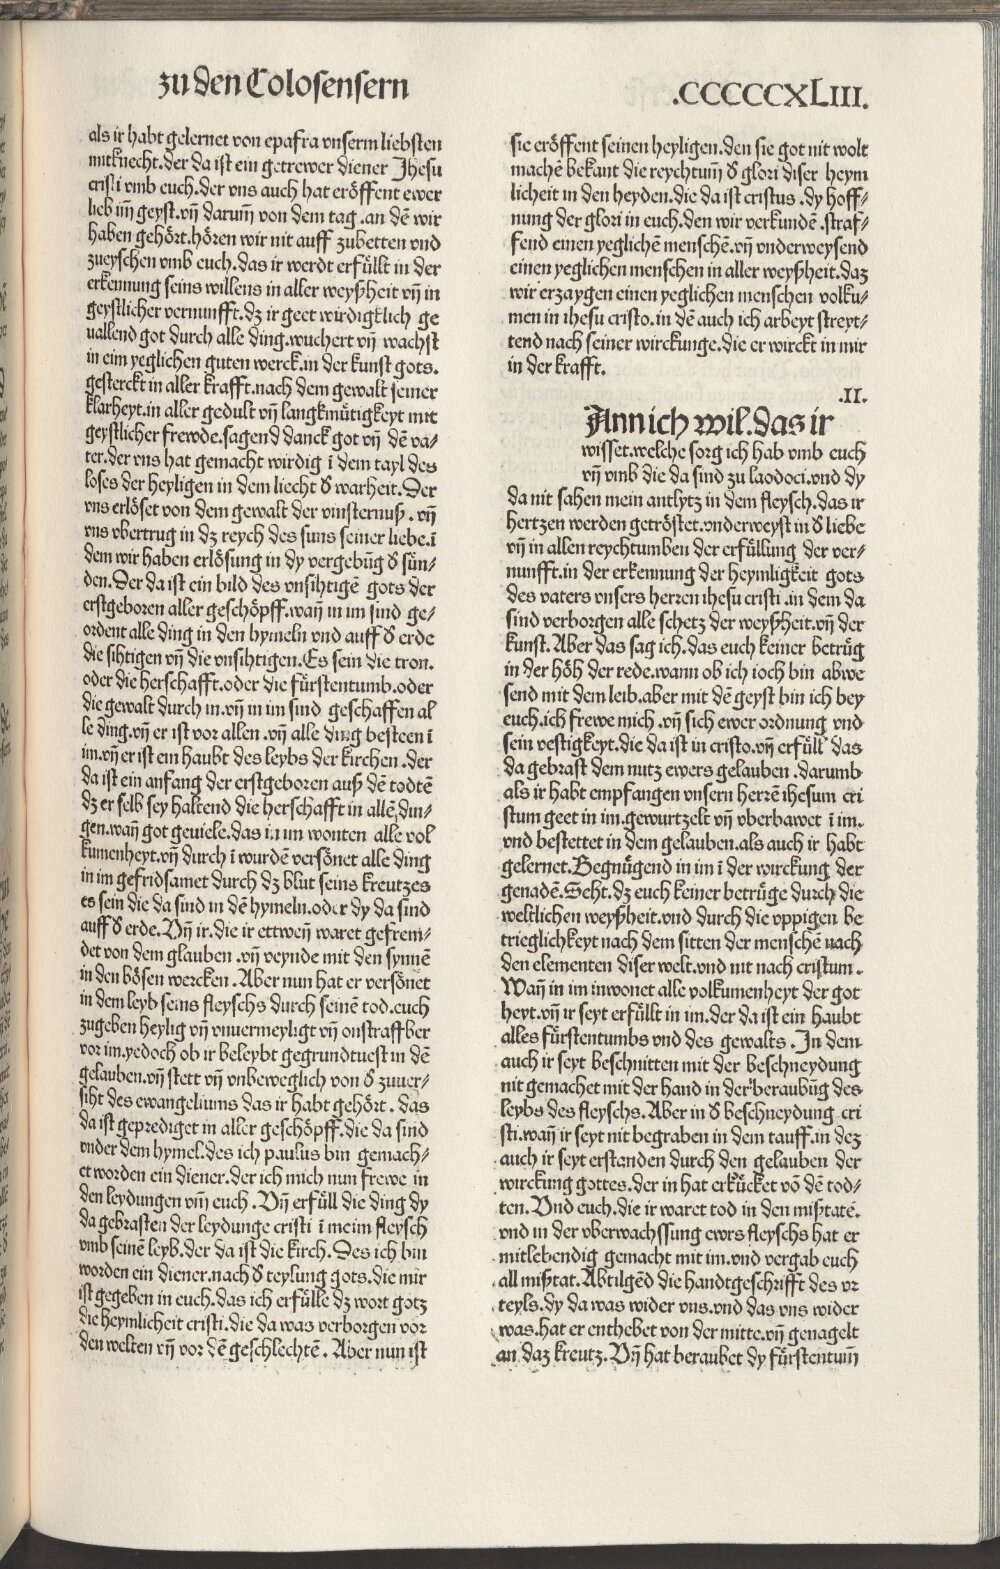 zu den Colosensern
.CCCCCCXLIII.
als ir habt gelernet von epafra vnserm liebsten
mitknecht.der da ist ein getrewer diener Jhesu
cristi vmb euch.der vns auch hat eröffent ewer
lieb im̄ geyst.vn̄ darum̄ von dem tag .an dē wir
haben gehört.hören wir nit auff zubetten vnd
zueyschen vmb euch.das ir werdt erfüllt in der
erkennung seins willens in aller weyßheit vn̄ in
geystlicher vernunfft.dz ir geet wirdigklich ge
uallend got durch alle ding.wuchert vn̄ wachst
in eim yeglichen guten werck.in der kunst gots.
gesterckt in aller krafft.nach dem gewalt seiner
klarheyt.in aller gedult vn̄ langkmütigkeyt mit
geystlicher frewde.sagend danck got vn̄ dē va⸗
ter.der vns hat gemacht wirdig ī dem tayl des
loses der heyligen in dem liecht d̄ warheit.Der
vns erlöset von dem gewalt der vinsternuß . vn̄
vns vbertrug in dz reych des suns seiner liebe.ī
dem wir haben erlösung in dy vergebūg d̄ sün⸗
den.Der da ist ein bild des vnsihtigē gots der
erstgeboren aller geschöpff.wan̄ in im sind ge⸗
ordent alle ding in den hymeln vnd auff d̄ erde
die sihtigen vn̄ die vnsihtigen.Es sein die tron.
oder die herschafft.oder die fürstentumb.oder
die gewalt durch in.vn̄ in im sind geschaffen al
le ding.vn̄ er ist vor allen .vn̄ alle ding besteen ī
im.vn̄ er ist ein haubt des leybs der kirchen .der
da ist ein anfang der erstgeboren auß dē todtē
dz er selb sey haltend die herschafft in allē din⸗
gen.wan̄ got geuiele.das in im wonten alle vol
kumenheyt.vn̄ durch ī wurdē versönet alle ding
in im gefridsamet durch dz blut seins kreutzes
es sein die da sind in dē hymeln.oder dy da sind
auff d̄ erde.Vn̄ ir.die ir ettwen̄ waret gefrem⸗
det von dem glauben .vn̄ veynde mit den synnē
in den bösen wercken . Aber nun hat er versönet
in dem leyb seins fleyschs durch seinē tod.euch
zugeben heylig vn̄ vnuermeyligt vn̄ onstraffber
vor im.yedoch ob ir beleybt gegrundtuest in dē
gelauben.vn̄ stett vn̄ vnbeweglich von d̄ zuuer⸗
siht des ewangeliums das ir habt gehört . das
da ist geprediget in aller geschöpff.die da sind
vnder dem hymel.des ich paulus bin gemach⸗
et worden ein diener.der ich mich nun frewe in
den leydungen vm̄ euch . Vn̄ erfüll die ding dy
da gebrasten der leydunge cristi ī meim fleysch
vmb seinē leyb.der da ist die kirch.Des ich bin
worden ein diener.nach d̄ teylung gots.die mir
ist gegeben in euch.das ich erfülle dz wort gotz
die heymlicheit cristi.die da was verborgen vor
den welten vn̄ vor dē geschlechtē . Aber nun ist
sie eröffent seinen heyligen.den sie got nit wolt
machē bekant die reychtum̄ d̄ glori diser heym
licheit in den heyden.die da ist cristus .dy hoff⸗
nung der glori in euch.den wir verkundē .straf⸗
fend einen yeglichē menschē.vn̄ vnderweysend
einen yeglichen menschen in aller weyßheit.daz
wir erzaygen einen yeglichen menschen volku⸗
men in ihesu cristo.in dē auch ich arbeyt streyt⸗
tend nach seiner wirckunge.die er wirckt in mir
in der krafft.
.II.
Ann ich wil.das ir
wisset.welche sorg ich hab vmb euch
vn̄ vmb die da sind zu laodoci.vnd dy
da nit sahen mein antlytz in dem fleysch.das ir
hertzen werden getröstet.vnderweyst in d̄ liebe
vn̄ in allen reychtumben der erfüllung der ver⸗
nunfft.in der erkennung der heymligkeit gots
des vaters vnsers herren ihesu cristi .in dem da
sind verborgen alle schetz der weyßheit.vn̄ der
kunst. Aber das sag ich.das euch keiner betrüg
in der höh der rede.wann ob ich ioch bin abwe
send mit dem leib.aber mit dē geyst bin ich bey
euch.ich frewe mich .vn̄ sich ewer ordnung vnd
sein vestigkeyt.die da ist in cristo.vn̄ erfüll das
da gebrast dem nutz ewers gelauben .darumb
als ir habt empfangen vnsern herrē ihesum cri
stum geet in im.gewurtzelt vn̄ vberbawet ī im.
vnd bestettet in dem gelauben.als auch ir habt
gelernet.Begnügend in im ī der wirckung der
genadē.Seht.dz euch keiner betrüge durch die
weltlichen weyßheit.vnd durch die vppigen be
trieglichkeyt nach dem sitten der menschē nach
den elementen diser welt.vnd nit nach cristum .
Wan̄ in im inwonet alle volkumenheyt der got
heyt.vn̄ ir seyt erfüllt in im.der da ist ein haubt
alles fürstentumbs vnd des gewalts . In dem
auch ir seyt beschnitten mit der beschneydung
nit gemachet mit der hand in der beraubūg des
leybs des fleyschs.Aber in d̄ beschneydung cri
sti.wan̄ ir seyt mit begraben in dem tauff.in dez
auch ir seyt erstanden durch den gelauben der
wirckung gottes.der in hat erkücket vō dē tod⸗
ten. Vnd euch.die ir waret tod in den mißtatē.
vnd in der vberwachssung ewrs fleyschs hat er
mitlebendig gemacht mit im.vnd vergab euch
all mißtat. Abtilgēd die handtgeschrifft des vr
teyls.dy da was wider vns.vnd das vns wider
was.hat er enthebet von der mitte.vn̄ genagelt
an daz kreutz. Vn̄ hat beraubet dy fürstentum̄